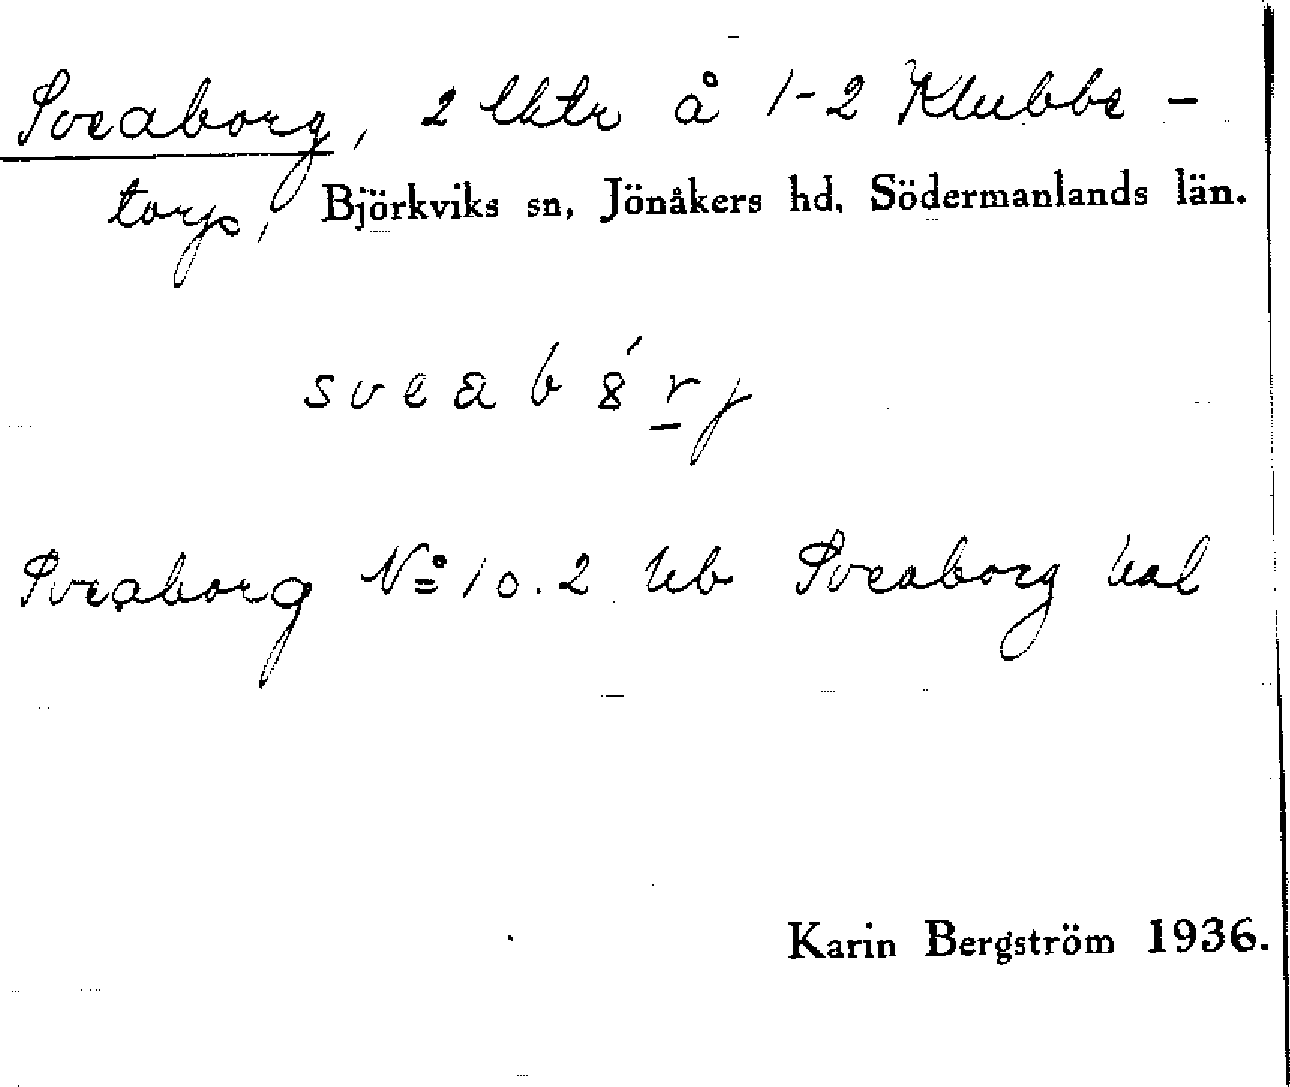 Sveaborg, 2 lhtr å 1-2 Klubbs-
torp, Björkviks sn, Jönåkers hd, Södermanlands län.
sveab8́rj
Sveaborg Nº 10.2 hb Sveaborg kal
Karin Bergström 1936.